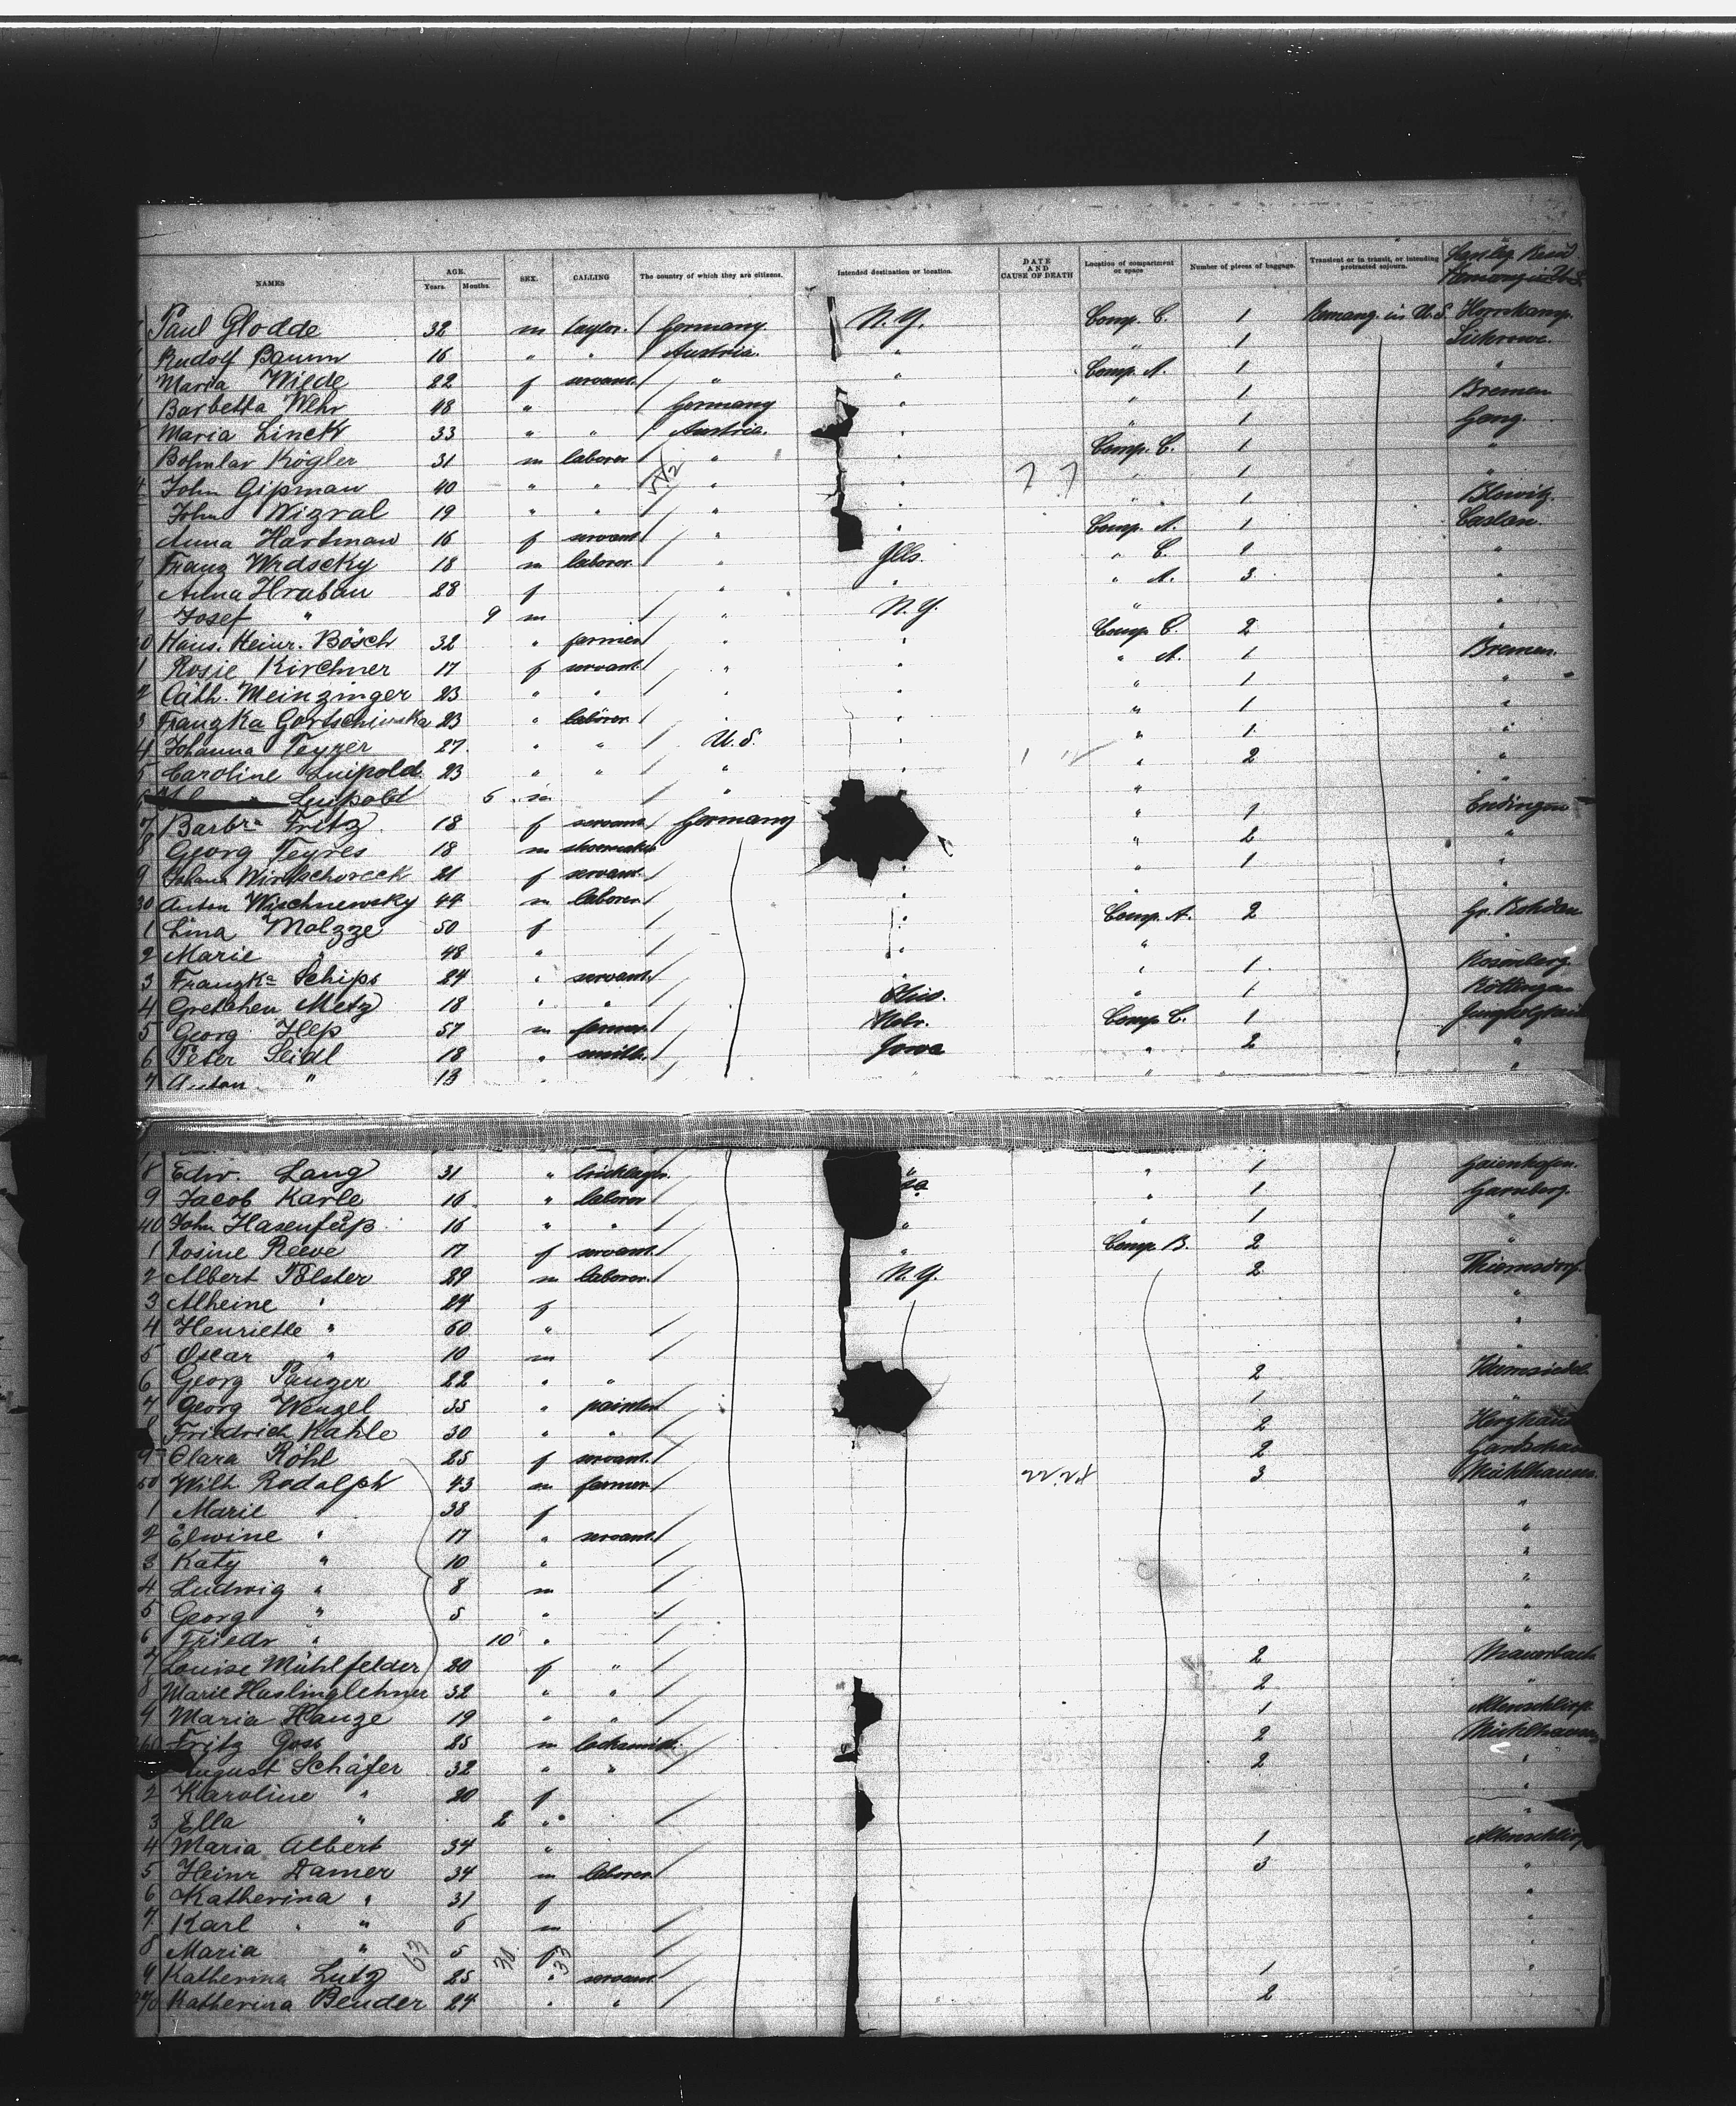 NAMES AGE. Years. Months. SEX. CALLING The country of which they are citizens. Intended destination or location. DATE AND CAUSE OF DEATH Location of compartment or space Number of pieces of baggage. Transient or in transit, or intending protracted sojourn.
Paul Glodde 32 m taylor. Germany N.Y. Comp. C. 1 Remang. in U.S.
Rudolf Baum 16 " " Austria. " " 1
Maria Wilde 22 f servant " " Comp. A. 1 "
Barbetta Wehr 48 " Germany " " 1 Bremen
Maria Linck 33 " " Austria. " " 1
Kögler 31 m laborer " " Comp. C. 1 "
John Gipman 40 " " " " " 1 "
John Wizral 19 " " " " " 1 Blowitz.
Anna Hartman 16 f servant " " Comp. A. 1 Caslau
Franz 18 m laborer " Ills. " C. 2 "
Anna Hraban 28 f " " " A. 3 "
Josef " 9 m " N.Y. " "
20 Hans. Heinr. Bösch 32 " farmer " " Comp. C. 2 "
1 Rosie Kirchner 17 f servant " " " A. 1 Bremen.
2 Cath. Meinzinger 23 " " " " " 1 "
3 Franzka 23 " laborer " " " 1 "
4 Johanna 27 " " U.S. " " 1 "
5 Caroline Luipold 23 " " " " " 2 "
6 Luipold 6 m " " "
7 Barbra Fritz 18 f servant Germany " 1 Endingen
8 Georg Teyres 18 m shoemaker " 2 "
9 21 f servant " " 1 "
30 Anton Wischnewsky 44 m laborer " "
1 Lina Molzze 50 f " Comp. A. 2
2 Marie " 48 " " " "
3 Franzka Schips 24 " servant. " " 1 Rosenberg
4 Gretchen Metz 18 " " Ohio. " 1 Röttingen
5 Georg Hep 57 m farmer Nebr. Comp. C. 1
6 Peter Seidl 18 " smith. Iowa " 2 "
7 Anton " 13 " " " "
8 Edw. Lang 31 " bricklayer. " " 1 Gaienhofen.
9 Jacob Karle 16 " laborer " 1 Garnberg.
40 John Hasenfuß 16 " " " " 1 "
1 Rosine Reeve 17 f servant. " Comp. B. 2 "
2 Albert Polster 29 m laborer. N.Y. 2 Thiemsdorf
3 Alheine " 24 f "
4 Henriette " 60 " "
5 Oscar " 10 m "
6 Georg Panger 22 " " 2
7 Georg Wenzel 35 " painter 1 "
Friedrich Kahle 30 " " 2
9 Clara Röhl 25 f servant. 2
50 Wilh. Rodolph 43 m farmer 3 Mühlhausen.
1 Marie " 38 f "
2 Elwine " 17 " servant. "
3 Katy " 10 " "
4 Ludwig " 8 m "
5 Georg " 5 " "
6 Friedr " 10 " "
7 Louise Mühlfelder 20 f " 2 Mauerbach
8 Marie Haslinglehner 32 " " 2 "
9 Maria Hauze 19 " " 1 Altenschlirf
60 Fritz Goss 25 m locksmith. 2 Mühlhausen
August Schäfer 32 " " 2 "
2 Karoline " 20 f "
3 Ella " 2 " "
4 Maria Albert 34 " 1 Altenschlirf
5 Heinr Damer 34 m laborer 3 "
6 Katherina " 31 f "
7 Karl " 6 m "
8 Maria " 5 f "
9 Katherina Lutz 25 " servant 1 "
70 Katherina Bender 24 " " 2
63 30 33